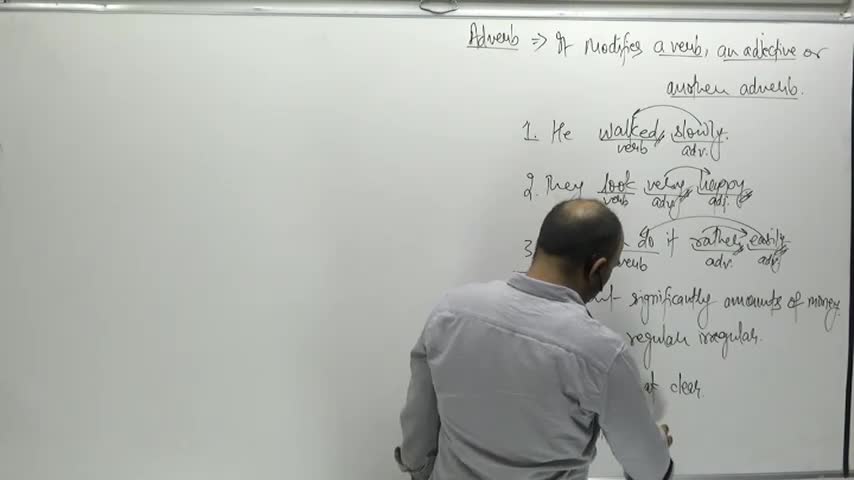 Adverb ⇒ It modifies a verb, an adjective or
another adverb.
1. He walked slowly.
verb adv.
2. They look very happy
verb adv adj.
3. do it rather easily
verb adv. adv
significantly amounts of money.
regular irregular.
clear.